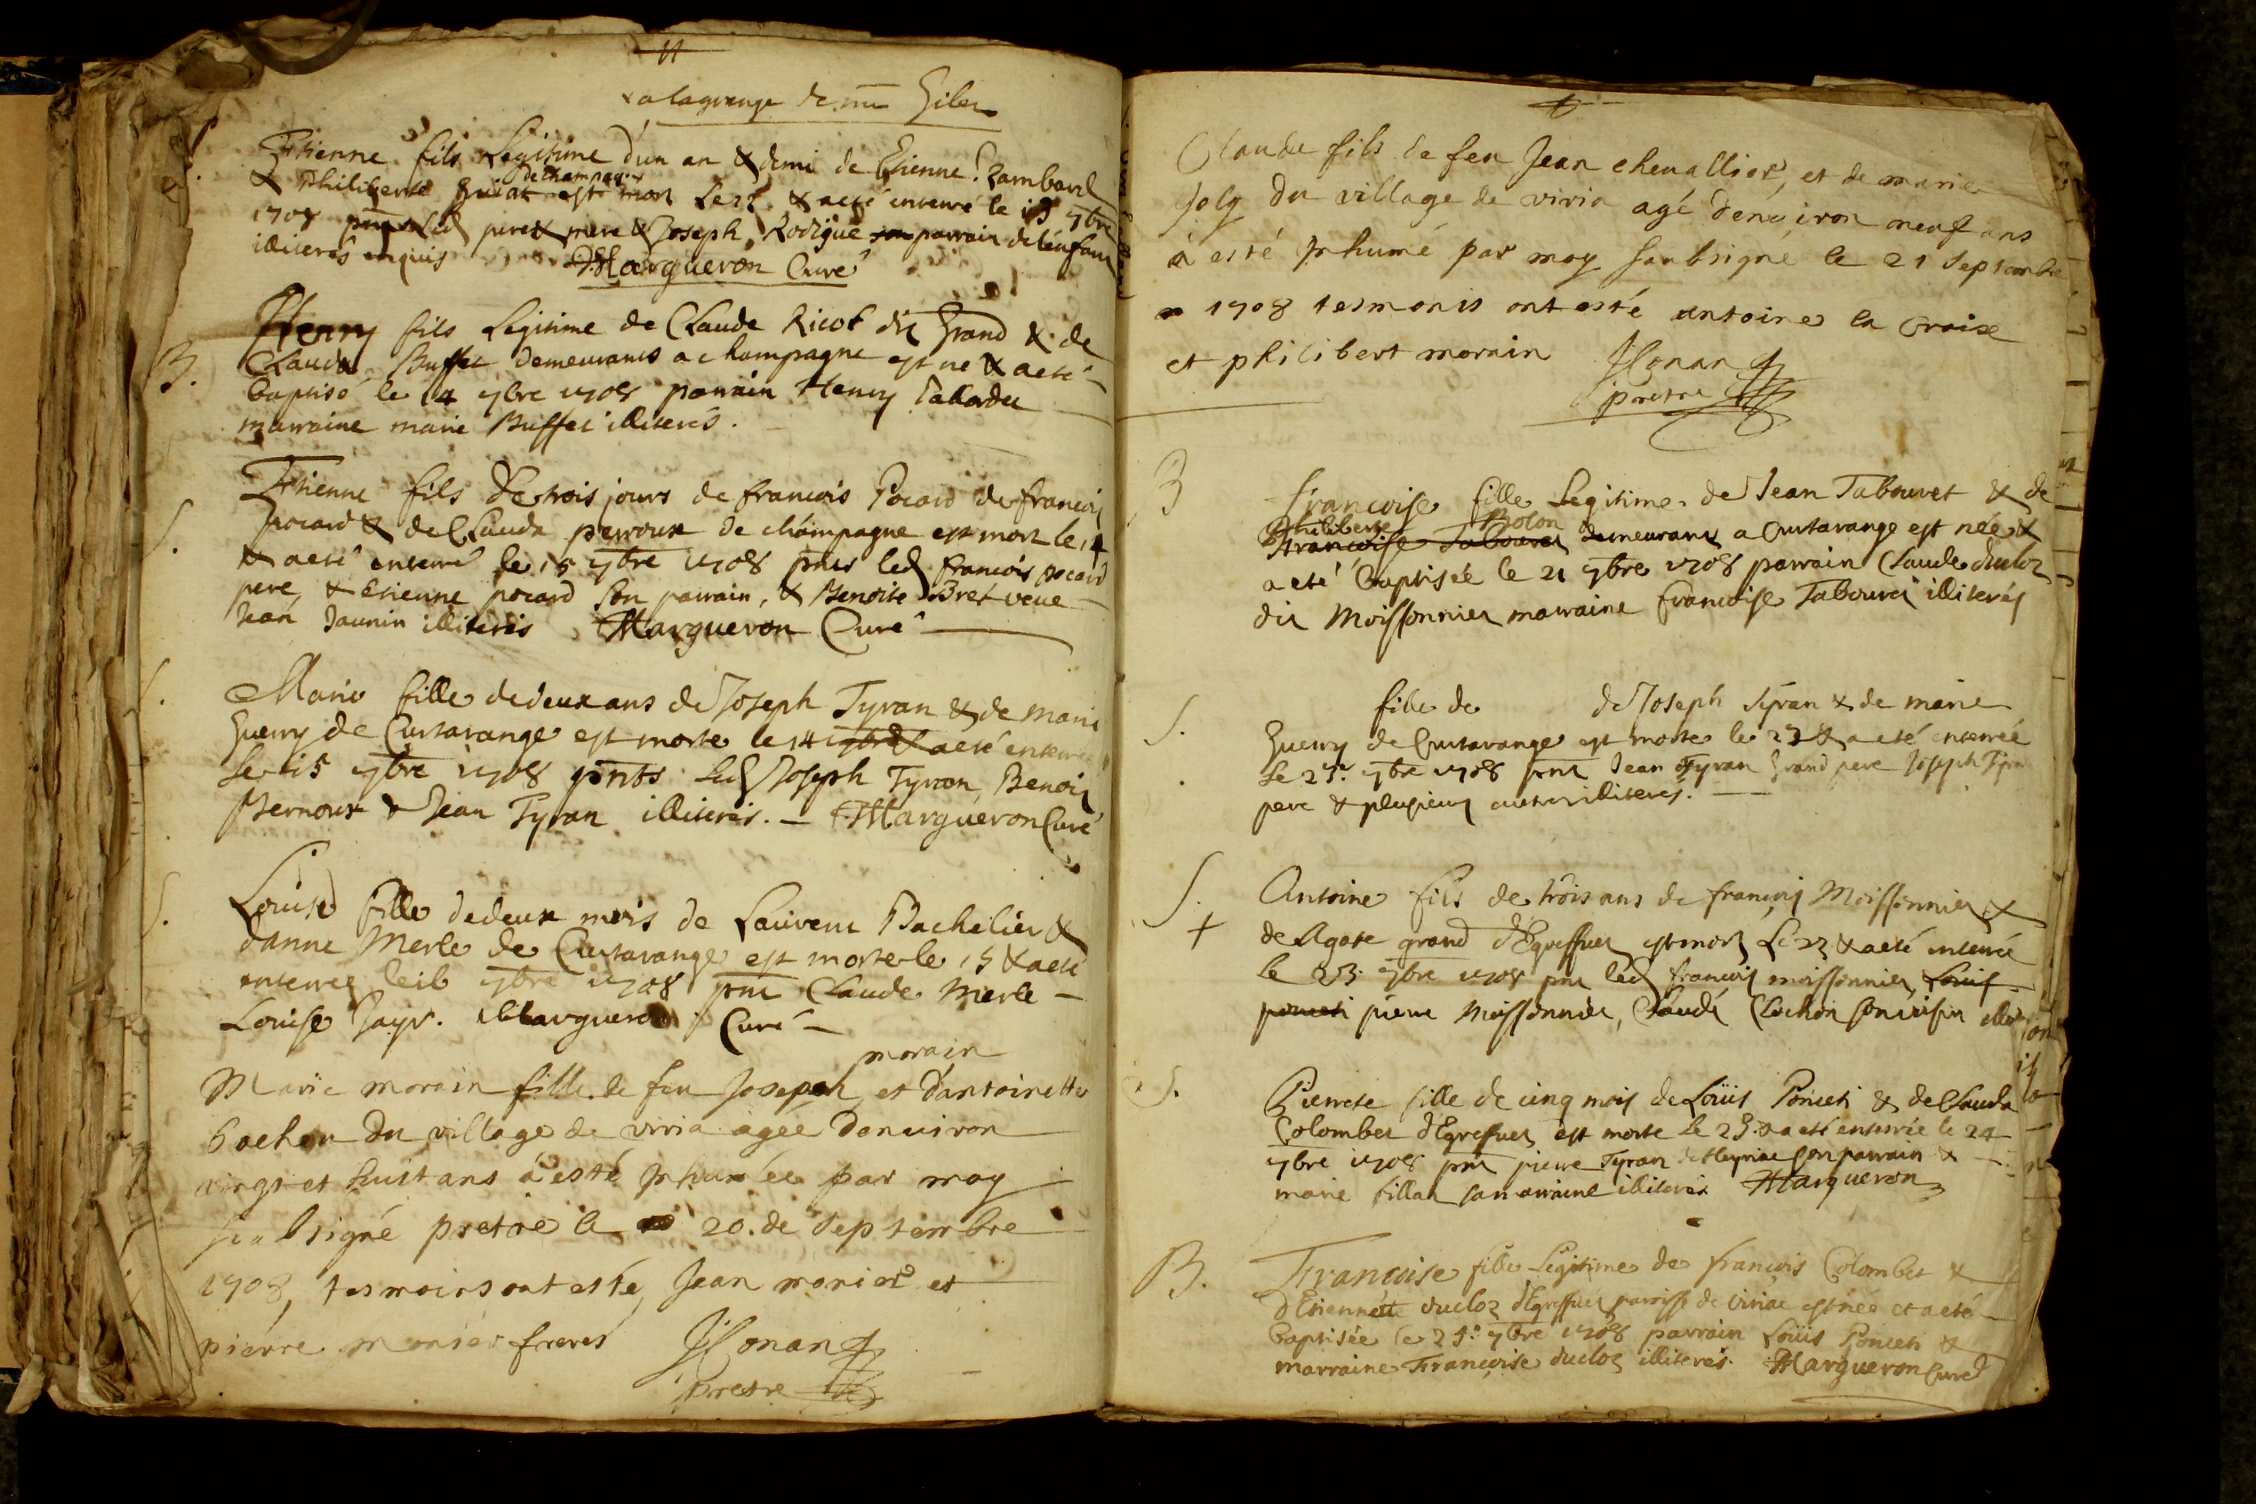 x a lagrange de mr Giler
S. Etienne fils Legitime d'un an & demi de Etienne Zambard
de champagne
& Philiberte Guiat est mort Le 12 & a eté enterré le 13 7bre
1708 led pere & Joseph Rodigue parrain de lénfant
illiterés enquis Margueron Curé
B. Henry fils Legitime de Claude Ricot dit Grand & de
Clauda Buffet demeurants a champagne est né & a eté
baptisé le 14 7bre 1708 parrain Henry Tabardet
marraine marie Buffet illiterés.
S. Etienne fils de trois jours de francois Pocard de francois
pocard & de Clauda perroux de champagne est mort le 14
& a eté enterré le 15 7bre 1708 pnts led francois pocard
pere, & Etienne pocard son parrain, & Benoite Bret veue
Jean Jaunin illiterés Margueron Curé
S. Marie fille de deux ans de Joseph Tyran & de marie
Guerry de Curtarange est morte le 14 7bre & a eté enterree
Le 15 7bre 1708 pnts Led Joseph Tyran, Benoit
Bernoux & Jean Tyran illiterés. - Margueron Curé
S. Louise fille de deux mois de Laurent Bachelier &
danne Merle de Curtarange est morte le 15 & a eté
enterree le 16 7bre 1708 pnt Claude Merle -
Louise Jayr. Margueron Curé -
morain
Marie morain fille de feu Joseph et d'antoinette
bachon du village de viria agée denuiron
vingt et huit ans à esté Jnhumée par moy
soubsigné pretre le 20. de Septembre
1708, tesmoins ont esté, Jean monier et
piérre monier freres JConand
prestre
Claude fils de feu Jean cheuallier, et de marie
Joly du village de viria agé dénuiron neuf ans
à esté Jnhumé par moy soubsigné le 21 Septembre
1708 tesmonis ont esté antoine la Croix
et philibert morain JConand
pretre
B Francoise fille Legitime de Jean Tabouret & de
Philiberte Bolon
Francoise Tabouret demeurants a Curtarange est née &
a eté baptisée le 21 7bre 1708 parrain Claude ducloz
dit Moissonnier marraine francoise Tabouret illiterés
S. fille de de Joseph Tyran & de marie
Guerry de Curtarange est morte le 23 & a eté enterrée
le 23e 7bre 1708 pnt Jean Tyran Grand pere Joseph Tyran
pere & plusieurs autres illiterés. -
S. Antoine fils de trois ans de françois Moissonnier &
+ de Agate grand d'Egreffuet est mort Le 22 & a eté enterré
le 23. 7bre 1708 pnt led françois moissonnier, Louis
poncet pierre Moissonnier, Claude Clochon son voisin
S. Pierrete fille de cinq mois de Loüis Poncet & de Clauda
Colombet d'Egreffuet est morte le 23. & a eté enterrée le 24
7bre 1708 pnt pierre Tyran de Meyriac son parrain &
marie fillat sa marraine illiterés Margueron
B. Francoise fille Légitime de francois Colombet &
d'Etiennette ducloz d'Egreffuet parroisse de viriac est née et a eté
baptisée le 25e 7bre 1708 parrain Loüis Poncet &
marraine Françoise ducloz illiterés. Margueron Curé